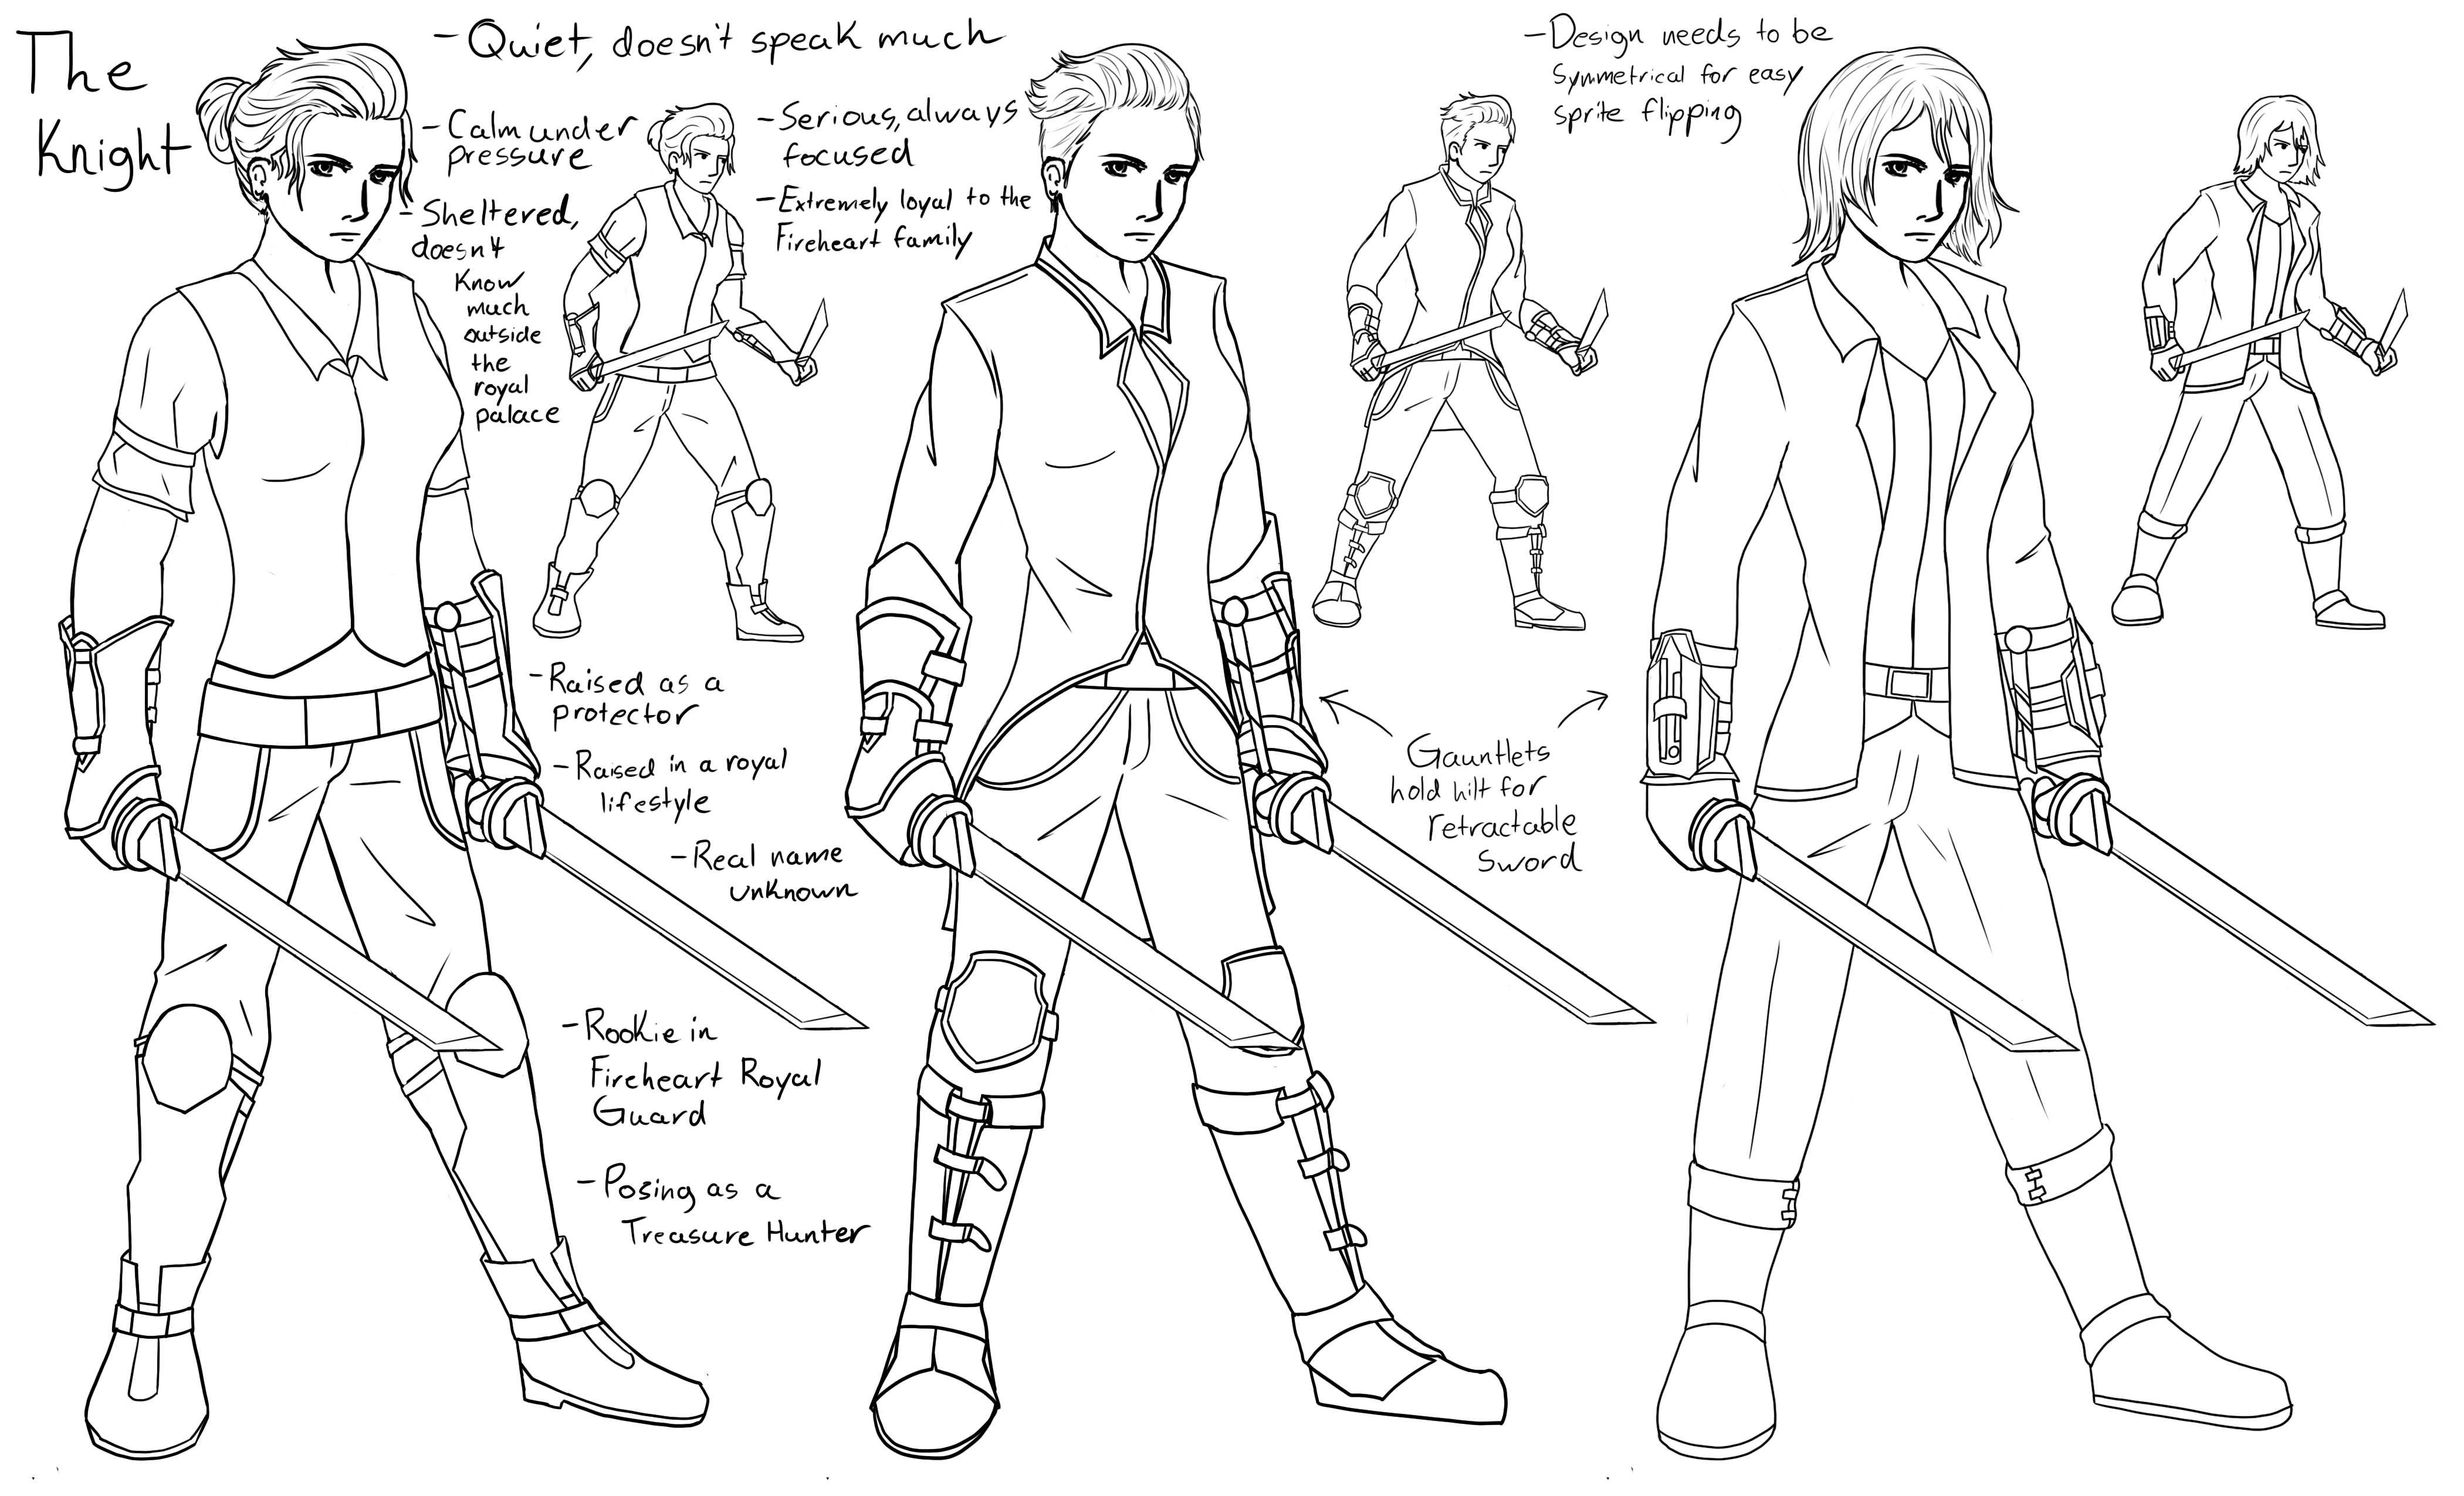 The
Knight
- Quiet, doesn't speak much
- Calm under
pressure
- Sheltered,
doesn't
Know
much
outside
the
royal
palace
- Serious, always
focused
- Extremely loyal to the
Fireheart family
- Design needs to be
Symmetrical for easy
sprite flipping
- Raised as a
protector
- Raised in a royal
lifestyle
- Real name
unknown
Gauntlets
hold hilt for
retractable
Sword
- Rookie in
Fireheart Royal
Guard
- Posing as a
Treasure Hunter